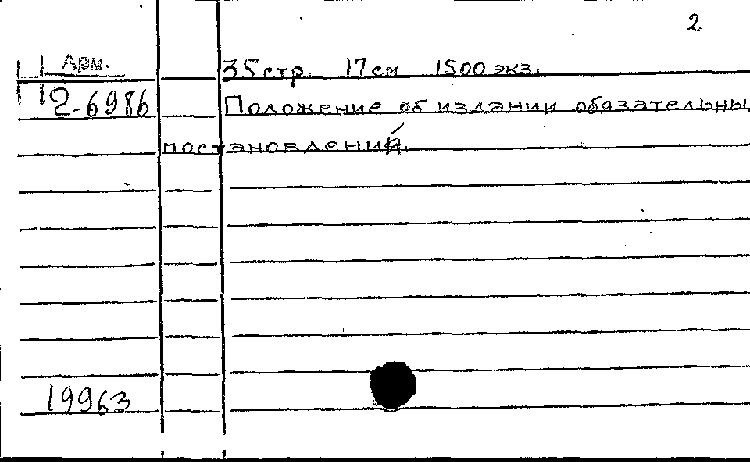 2
Арм. 35 стр. 17 см 1500 экз.
2-6986 Положение об издании обязательны
постановлений.
19963